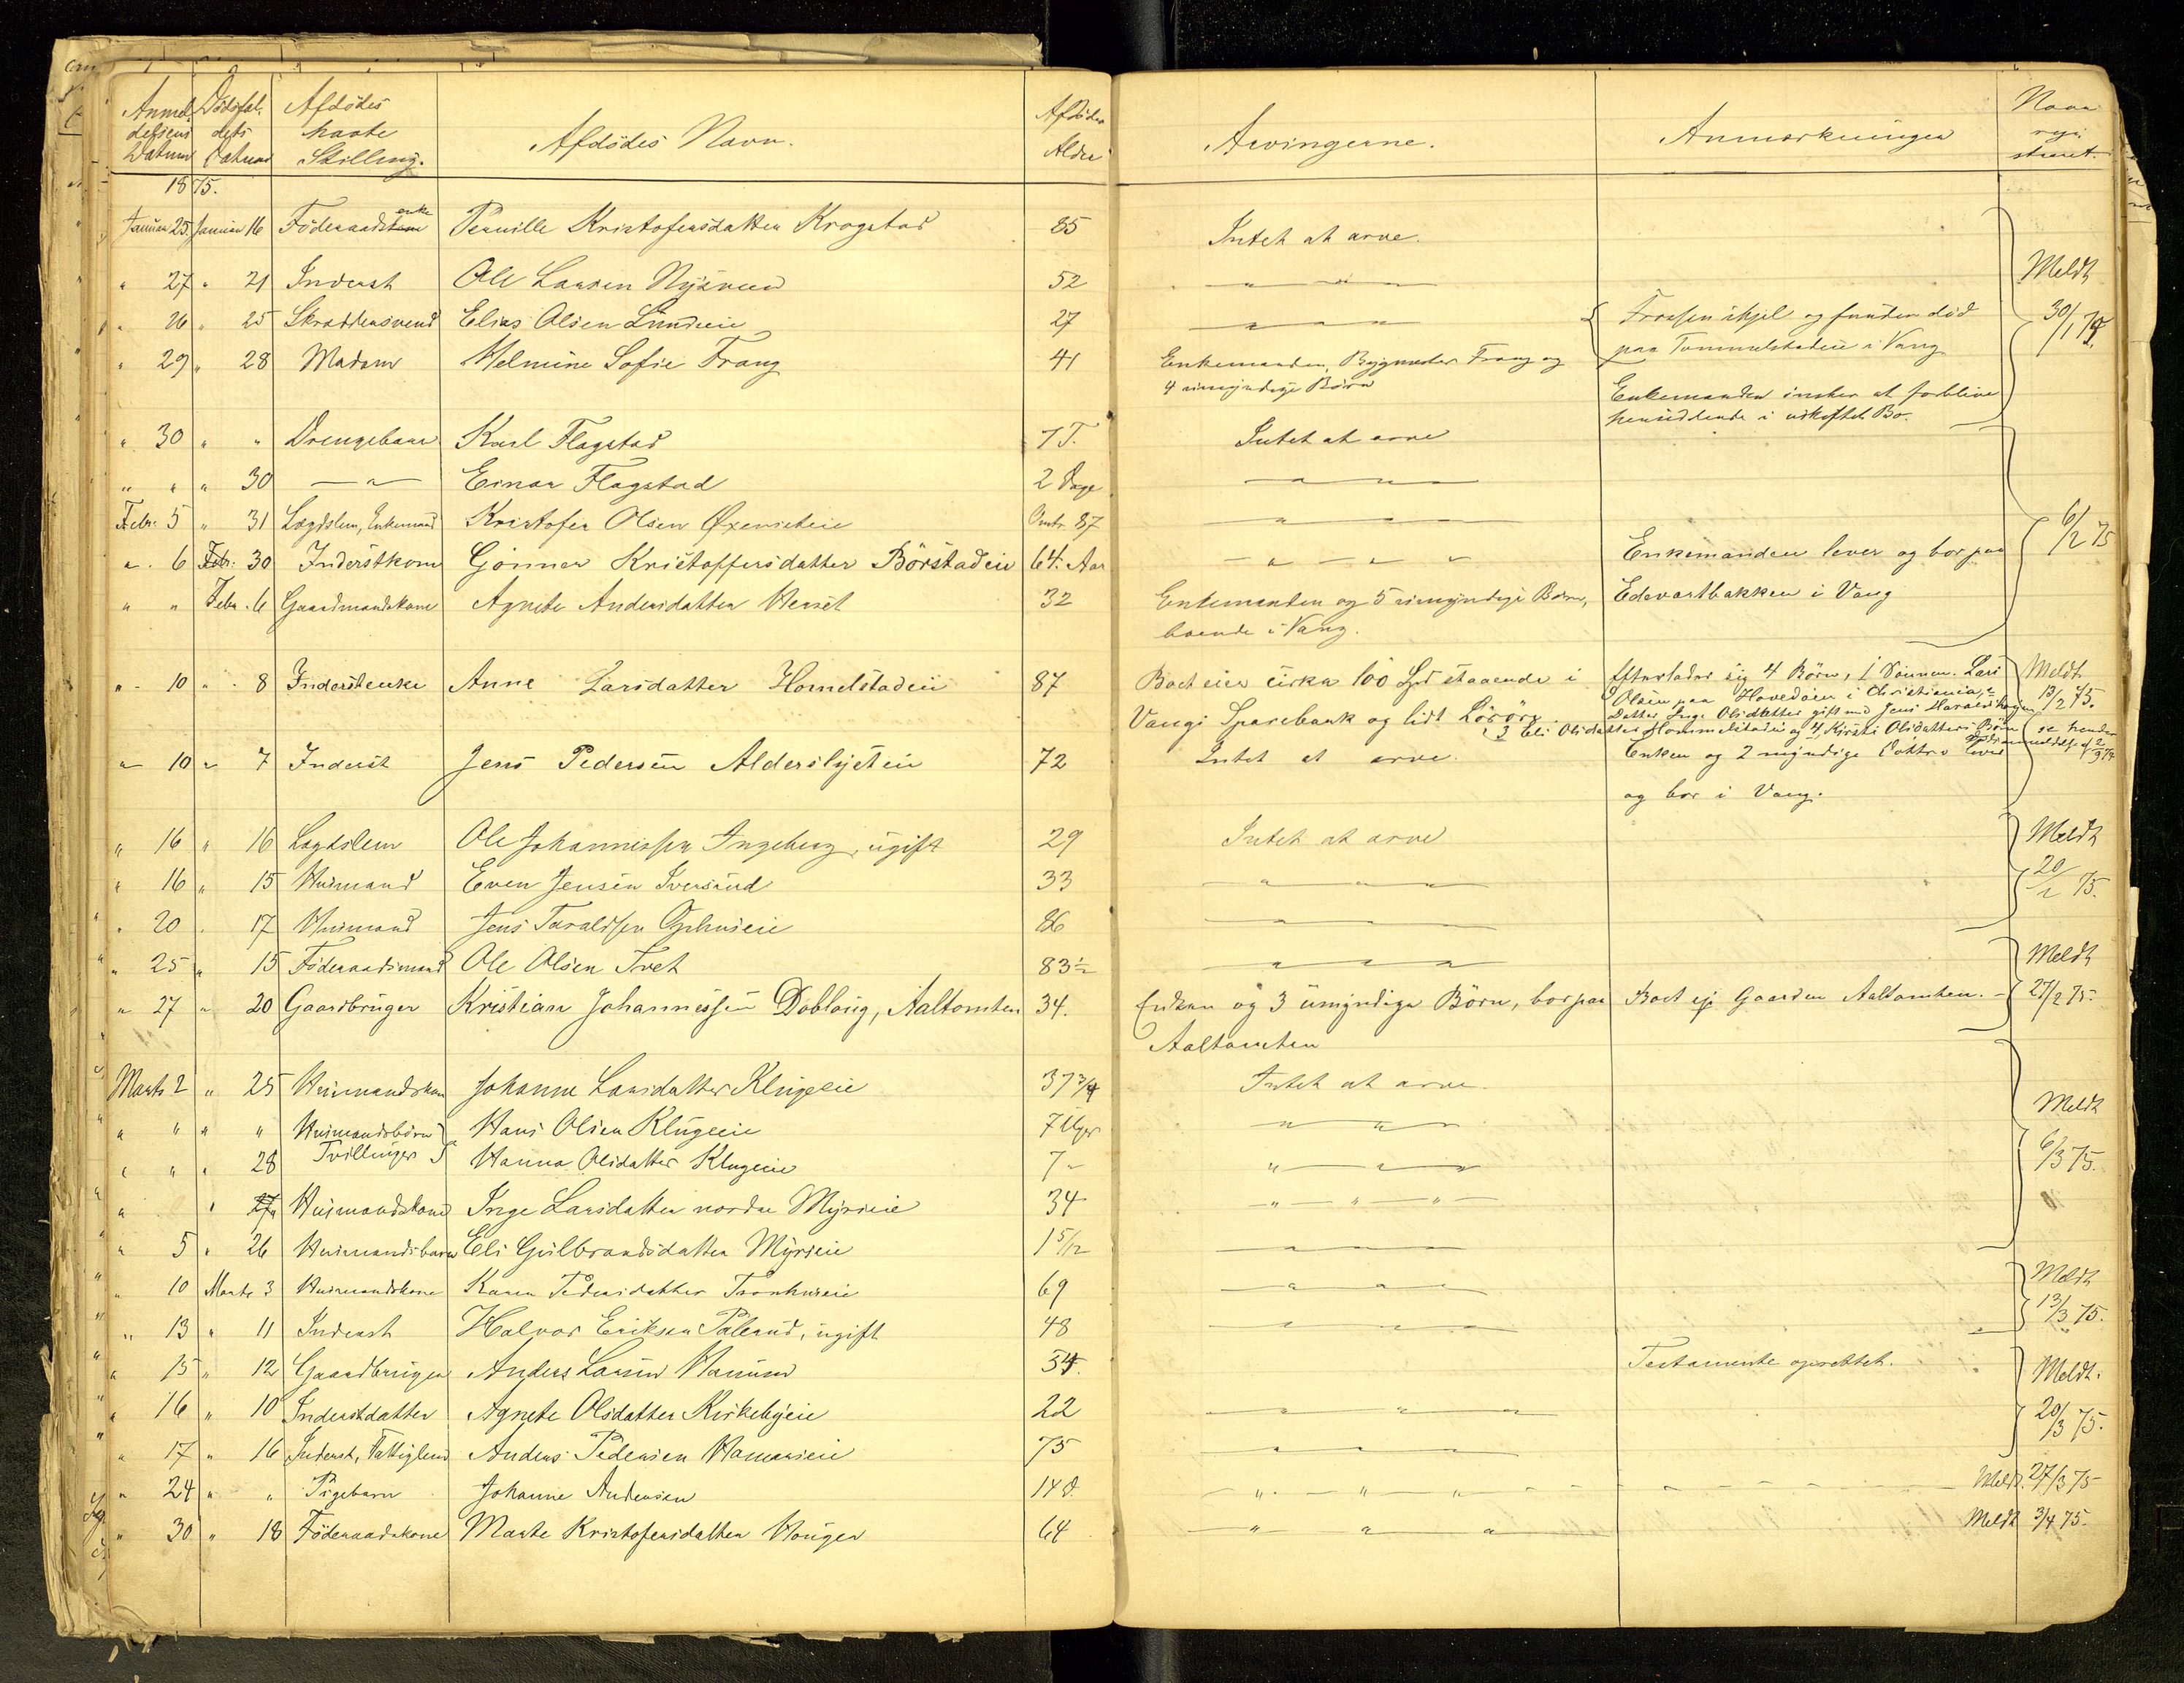 Anmel- Dödsfal- Afdödes Afdödes Navn. Afdödes Arvingerne. Anmærkninger Naar
delsens dets havte Alder regi
Datum Datum Stilling. streret.
1875.
Januar 25 Januar 16 Föderaadsenke Pernille Kristofersdatter Krogstad 85 Intet at arve.
" 27 " 21 Inderst Ole Larsen Nysveen 52 " " " Meldt
" 26 " 25 Skræddersvend Elias Olsen Lundeie 27 " " " Frossen ihjel og funden död 30/1 75.
paa Tommelstadeie i Vang
" 29 " 28 Madam Helmine Sofie Frang 41 Enkemanden, Bygmester Frang og
4 umyndige Börn Enkemanden önsker at forblive
hensiddende i uskiftet Bo.
" 30 " " Drengebarn Karl Flagstad 1 T. Intet at arve
" " " 30 — " — Einar Flagstad 2 Dage " " "
Febr. 5 " 31 Lægdslem, Enkemand Kristofer Olsen Omtr. 87 " " " 6/2 75
" 6 Febr. 30 Inderstkone Gönner Kristoffersdatter Börstadeie 64. Aar " " " Enkemanden lever og bor paa
Edevartbakken i Vang
" " Febr. 6 Gaardmandskone Agnete Andersdatter Herset 32 Enkemanden og 5 umyndige Börn,
boende i Vang.
" 10 " 8 Inderstenke Anne Larsdatter Homelstadeie 87 Boet eier cirka 100 Spd staaende i Efterlader sig 4 Börn, 1 Sönnen Lars Meldt
Vangs Sparebank og lidt Lösöre Olsen paa Hovedöen i Christiania, 2 13/2 75.
Datter Inge Olsdatter gift med Jens Haraldshagen
3 Eli Olsdatter Hommelstadeie og 4 Kirsti Olsdatters Börn se hendes
" 10 " 7 Inderst Jens Pedersen Alderslysteie 72 Intet at arve. Enken og 2 myndige Döttre lever
og bor i Vang.
" 16 " 16 Lægdslem Ole Johannessen Ingeberg, ugift 29 Intet at arve Meldt
" 16 " 15 Husmand Even Jensen Iversrud 33 " " " 20/2 75.
" 20 " 17 Husmand Jens Taraldsen Ophuseie 86 " "
" 25 " 15 Föderaadsmand Ole Olsen Tvet 83½ " " " Meldt
" 27 " 20 Gaardbruger Kristian Johannessen Dobloug, Aaltomten 34. Enken og 3 umyndige Börn, bor paa Boet ejer Gaarden Aaltomten. 27/2 75.
Aaltomten
Marts 2 " 25 Husmandskone Johanne Larsdatter Klugeeie 37 3/4 Intet at arve.
" " " " Husmandsbörn Hans Olsen Klugeeie 7 Uger " " " Meldt
" " " 28 Tvillinger Hanna Olsdatter Klugeeie 7 " " " " 6/3 75.
" " 27 Husmandskone Inge Larsdatter nordre Myrseie 34 " " "
" 5 " 26 Husmandsbarn Eli Gulbrandsdatter Myrseie 1 5/12 " " "
" 10 Marts 3 Husmandskone Karen Pedersdatter Tronhuseie 69 " " " Meldt
" 13 " 11 Inderst Halvor Eriksen Palerud, ugift 48 " " " 13/3 75.
" 15 " 12 Gaardbruger Anders Larsen Hanum 54. Testamente oprettet. Meldt.
" 16 " 10 Inderstdatter Agnete Olsdatter Kirkebyeie 22 " " " 20/3 75.
" 17 " 16 Inderst, Fattiglem Anders Pedersen Hamarseie 75 " " "
" 24 " " Pigebarn Johanne Andersen 14 D. " " " Meldt. 27/3 75
" 30 " 18 Föderaadskone Marte Kristofersdatter Houger 64 " " " Meldt 3/4 75.